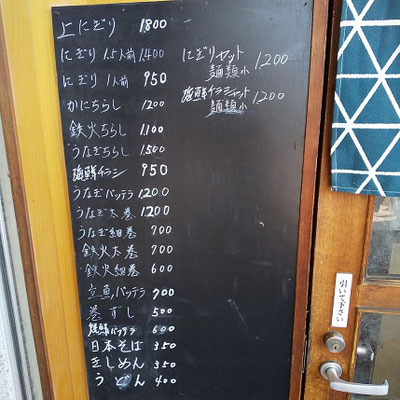 上にぎり 1.800
にぎり 1.5人前 1.400
にぎり 1人前 950
かにちらし 1200
鉄火ちらし 1.100
うなぎちらし 1500
海鮮チラシ 950
うなぎバッテラ 1.200
うなぎ太巻 1.200
うなぎ細巻 700
鉄火太巻 700
鉄火細巻 600
立魚バッテラ 700
巻ずし 500
海鮮バッテラ 600
日本そば 350
きしめん 350
うどん 400
にぎりセット 1.200
麺類小
海鮮チラシセット 1.200
麺類小
引いて下さい